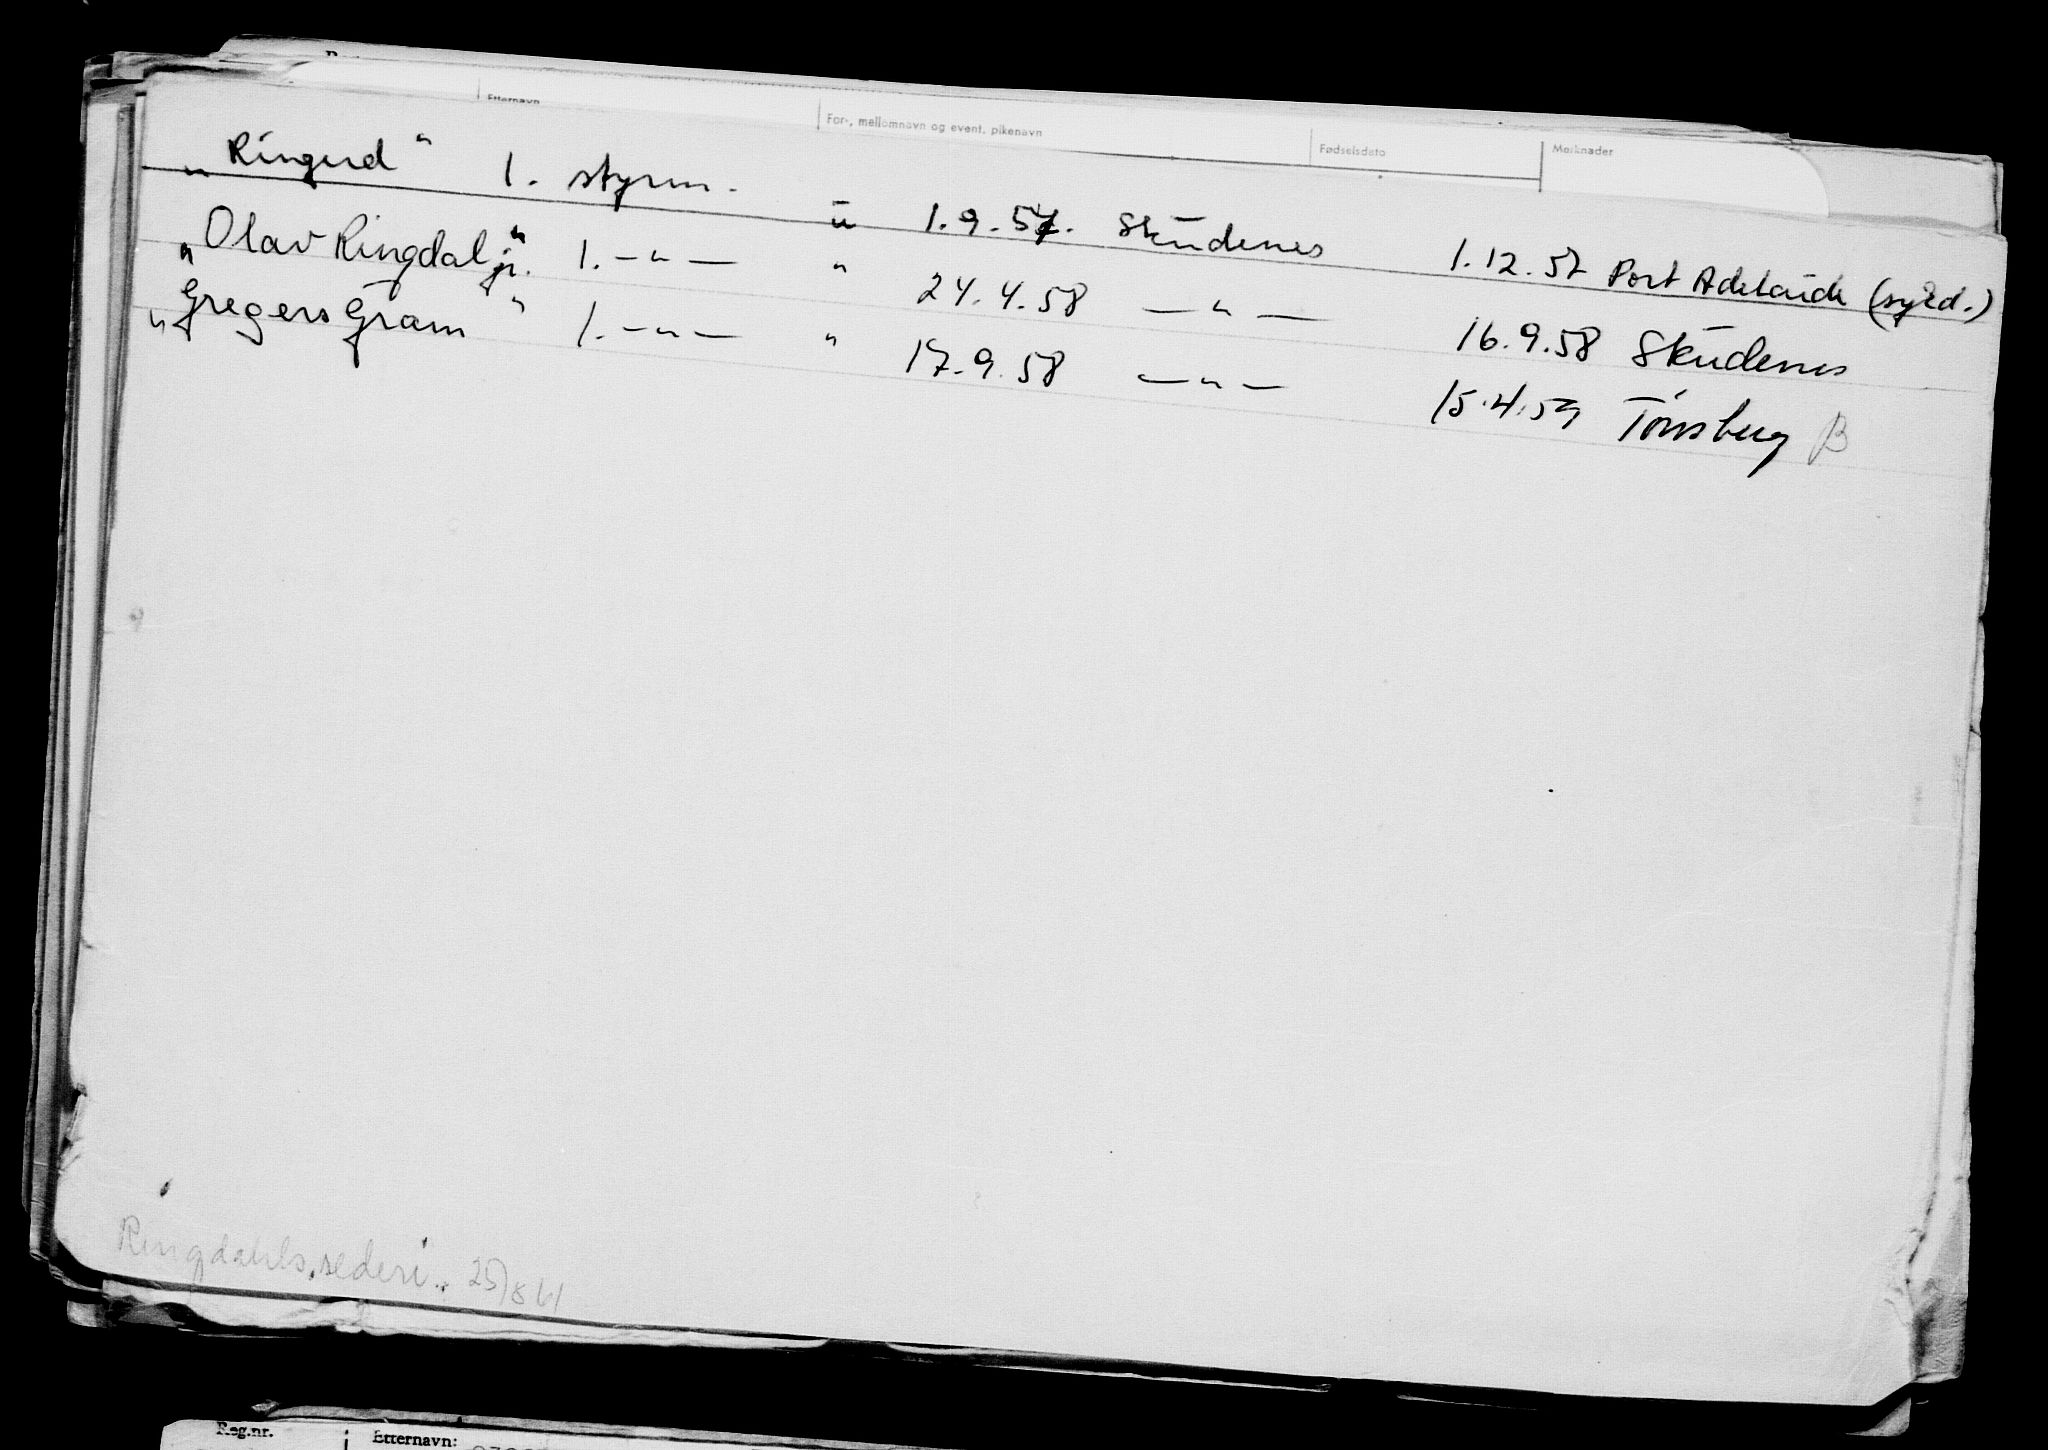 Etternavn For-, mellomnavn og event. pikenavn Fødselsdato Merknader
„Ringerd" 1. styrm. ū 1.9.57. Skudenes 1.12.57 Port Adelaide (sykd.)
„Olav Ringdal jr." 1. — " — " 24.4.58 — " — 16.9.58 Skudenes
„Gregers Gram" 1. — " — " 17.9.58 — " — 15.4.59 Tønsberg B
Ringdahls rederi. 25/8 61
Reg.nr. Etternavn: